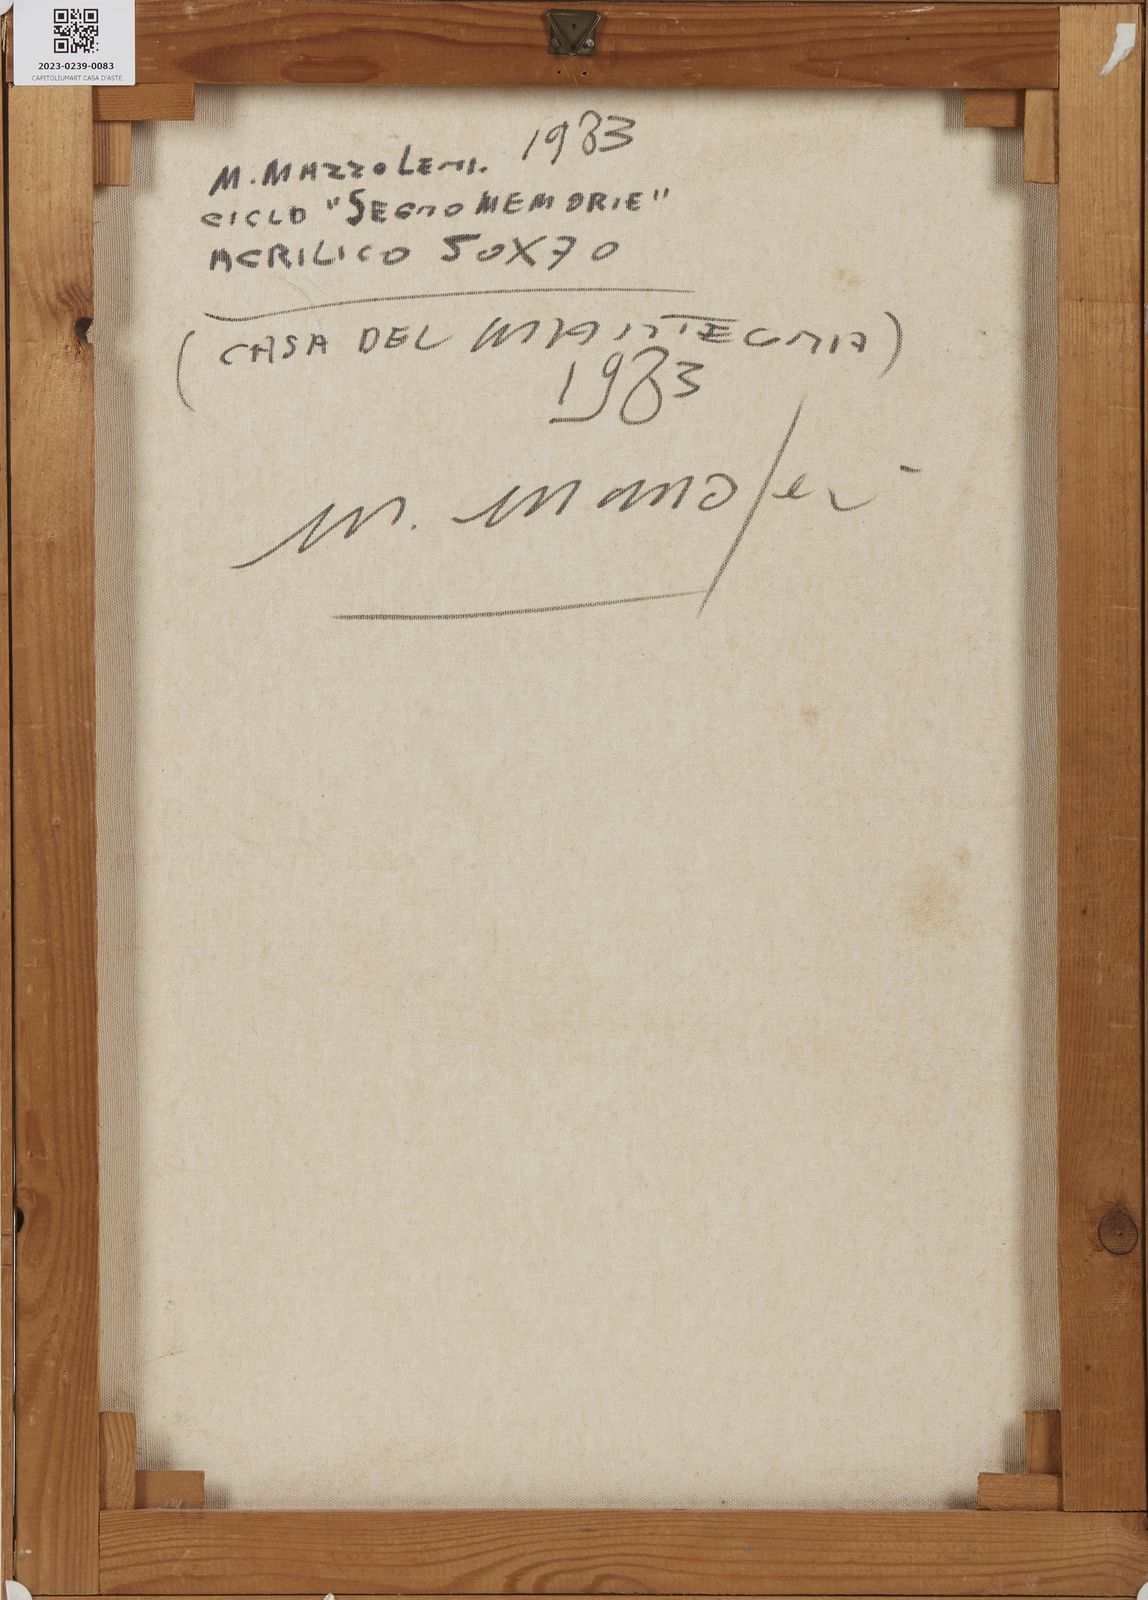 2023-0239-0083
CAPITOLIUMART CASA D'ASTE
M. MAZZOLENI. 1983
CICLO "SEGNO MEMORIE"
ACRILICO 50X70
(CASA DEL MANTEGNA)
1983
M. Mazzoleni